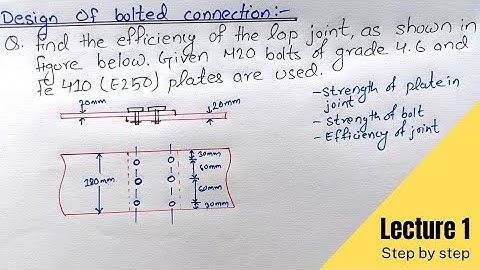 Design Of bolted connection:-
Q. find the efficiency of the lap joint, as shown in
figure below. Given M20 bolts of grade 4.6 and
fe 410 (E250) plates are used.
- Strength of plate in
joint
- Strength of bolt
- Efficiency of joint
20mm
20mm
180mm
30mm
60mm
60mm
30mm
Lecture 1
Step by step